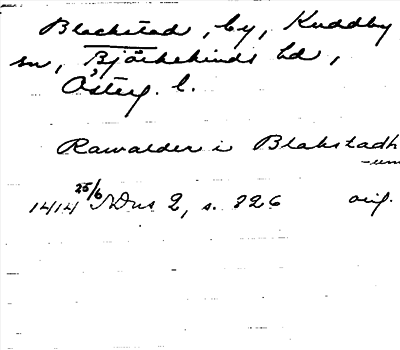 Blackstad, by, Kuddby
sn, Björkekinds hd,
Österg. l.
Rawalder i Blakstadh
-um
1414 25/6 SDns 2, s. 826 orig.